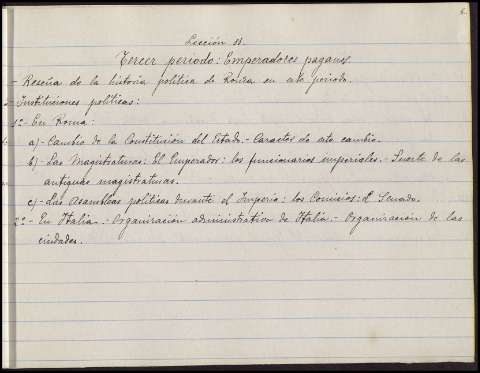 Lección 11.
Tercer periodo: Emperadores paganos.
- Reseña de la historia política de Roma en este periodo.
- Instituciones políticas:
1º- En Roma:
a)- Cambio de la Constitución del Estado.- Caracter de este cambio.
b)- Las Magistraturas: El Emperador: los funcionarios imperiales.- Suerte de las
antiguas magistraturas.
c)- Las Asambleas políticas durante el Imperio: los Comicios: el Senado.
2º- En Italia.- Organización administrativa de Italia.- Organización de las
ciudades.